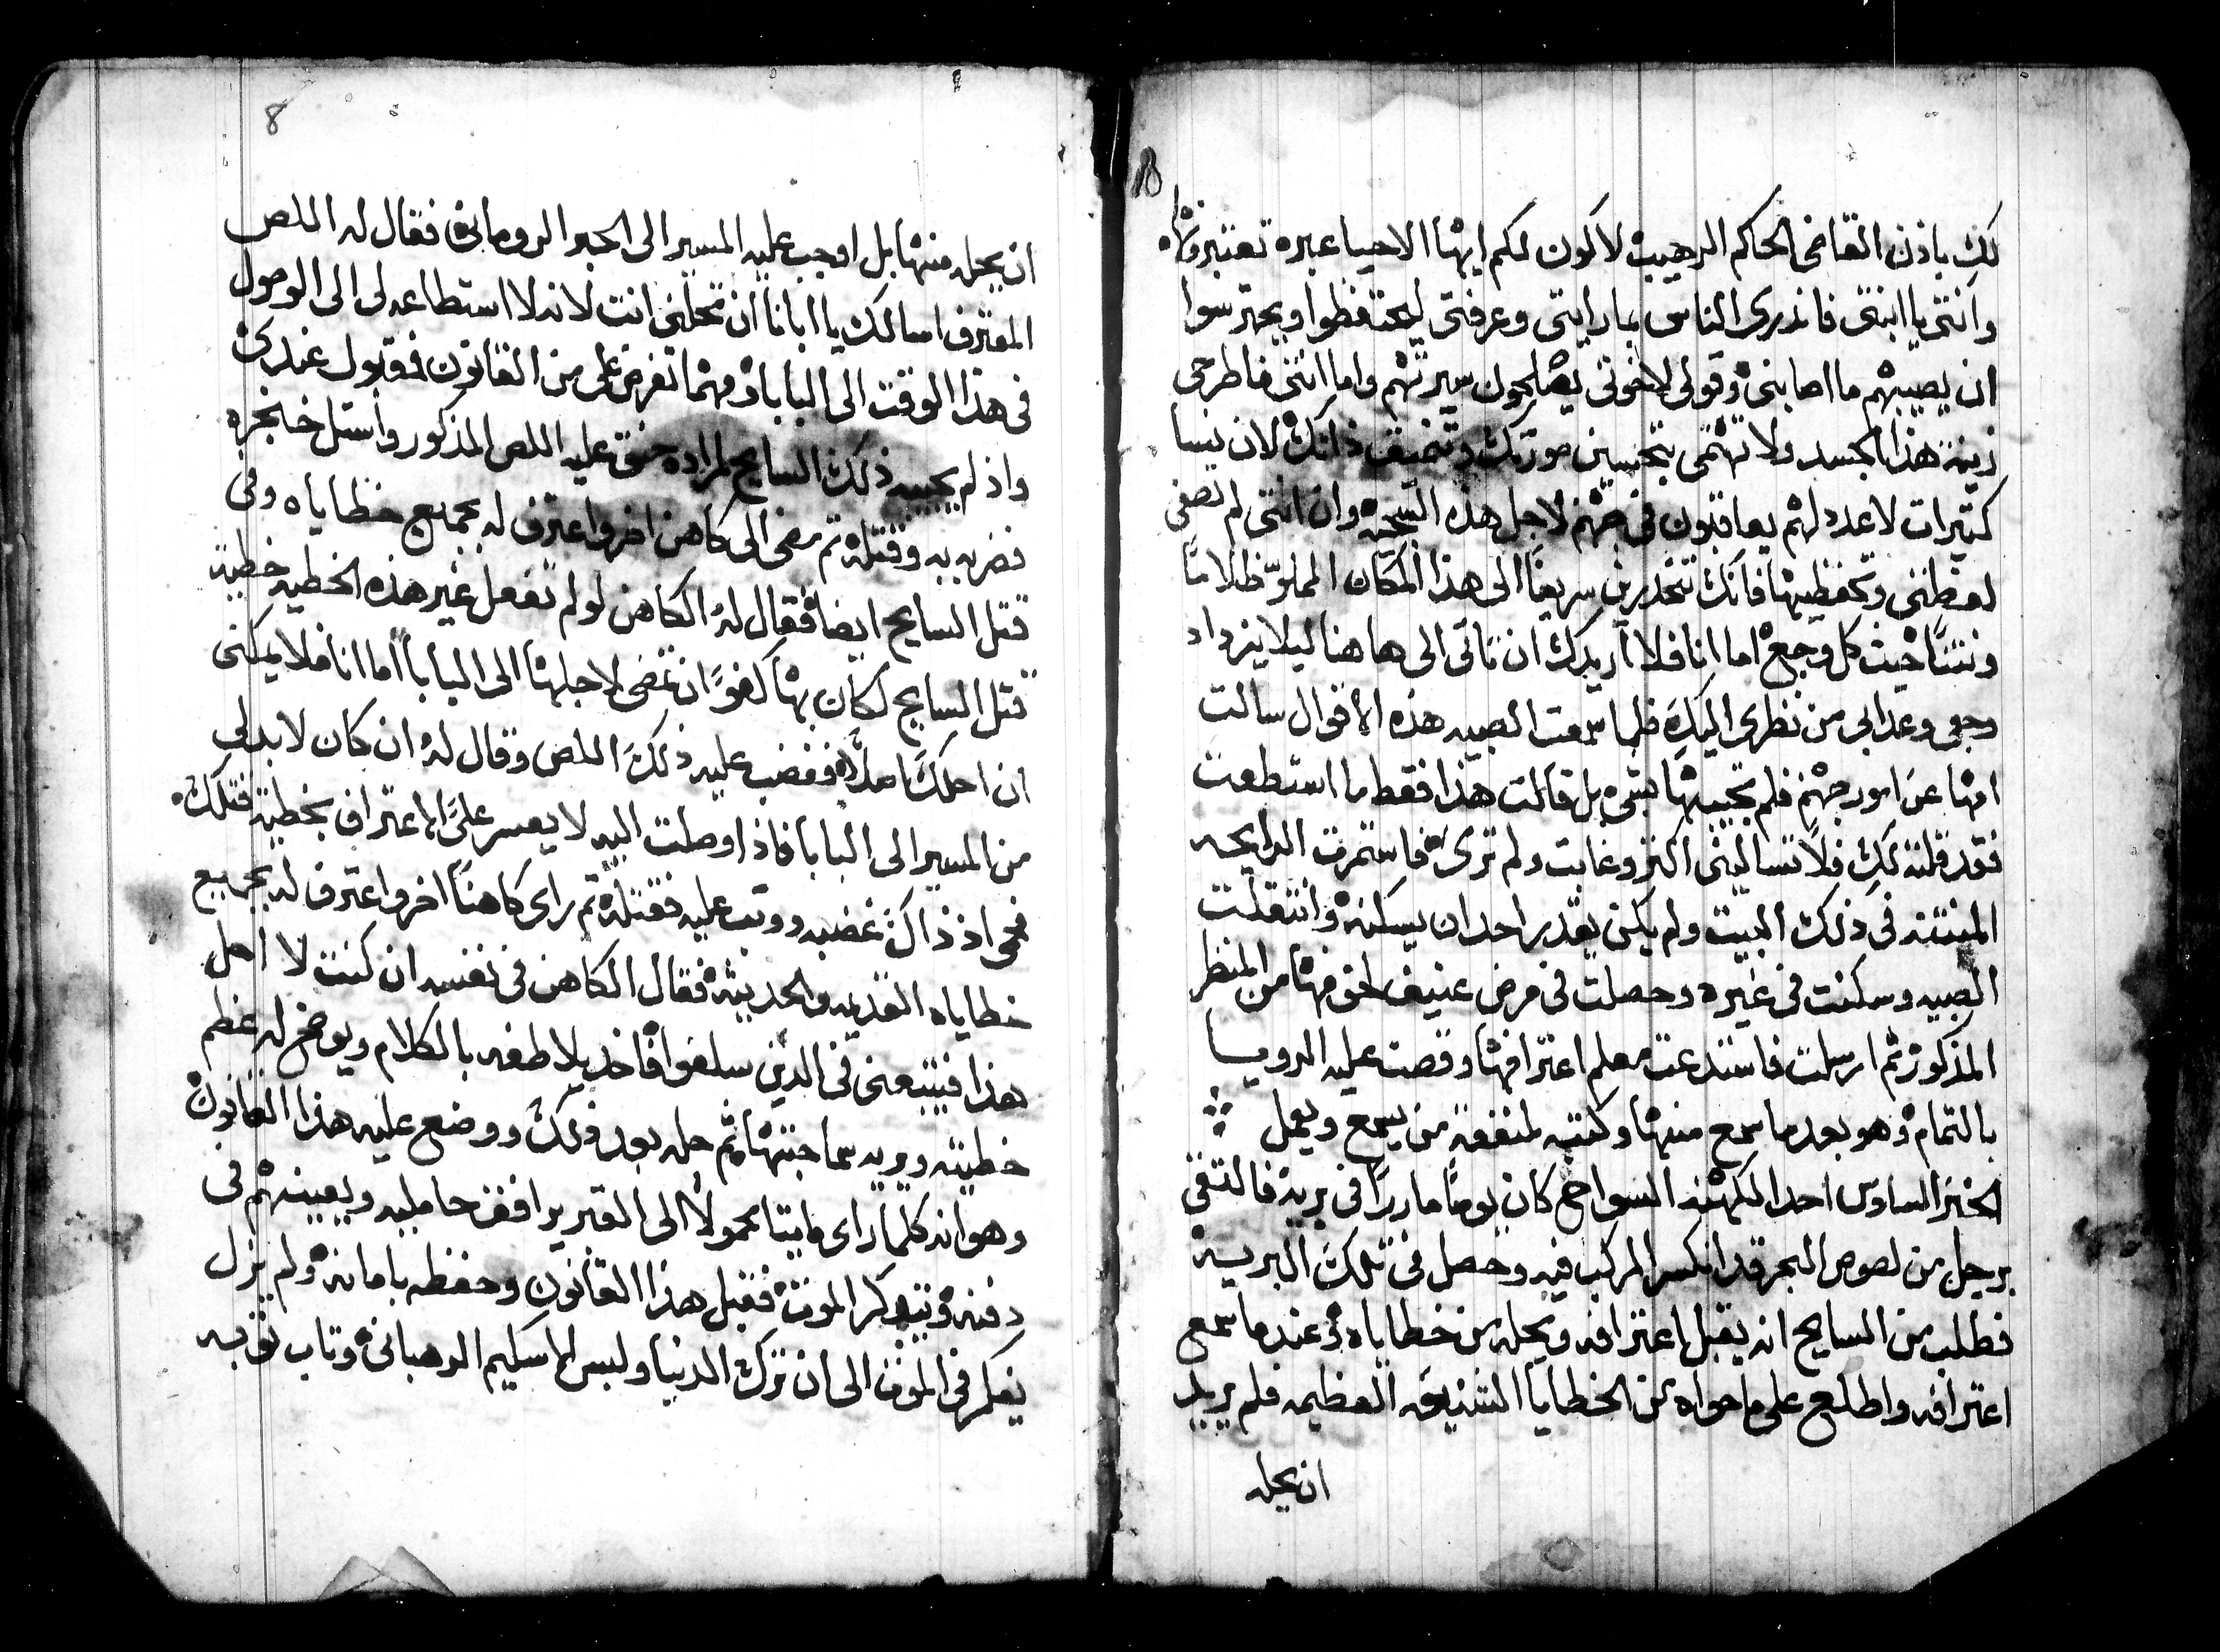 لك باذن القاضي الحاكم الرهيب لاكون لكم ايها الاحيا عبره تعتبروا
وانتي يا ابنتي فانذري الناس بما رايتي وعرفتي ليحتفظوا ويحترسوا
ان يصيبهم ما اصابني وقولي لاخوتي يصلحون سيرتهم واما انتي فاطرحي
زينة هذا الجسد ولا تهتمي بتحسين صورتك وتخفيف ذاتك لان نسا
كثيرات لا عدد لهم يعاقبون في جهنم لاجل هذه السجيه وان انتي لم تصغي
لعظتي وتحفظيها فانك تنحدرين سريعًا الى هذا المكان المملوّ ظلامًا
ونتنًا حيث كل وجع اما انا فلا اريدك ان تاتي الى هاهنا ليلا يزداد
وجعي وعذابي من نظري اليك فلما سمعت الصبيه هذه الاقوال سالت
امها عن امور جهنم فلم تجيبها بشي بل قالت هذا فقط ما استطعت
فقد قلته لك فلا تساليني اكثر وغابت ولم ترى فاستمرت الرايحه
المنتنه في ذلك البيت ولم يكن يقدر احد ان يسكنه وانتقلت
الصبيه وسكنت في غيره وحصلت في مرض عنيف لخوفها من المنظر
المذكور ثم ارسلت فاستدعت معلم اعترافها وقصت عليه الرويا
بالتمام وهو بعد ما سمع منها وكتبه لمنفعة من يسمع ويعمل
الخبر السادس احد الكهنه السواح كان يومًا مارًا في برية فالتقى
برجل من لصوص البحر قد انكسر المركب فيه وحصل في تلك البريه
فطلب من السايح انه يقبل اعترافه ويحله من خطاياه وعندما سمع
اعترافه واطلع على ما حواه من الخطايا الشنيعه العظيمه فلم يريد
ان يحله
8
ان يحله منها بل اوجب عليه المسير الى الحبر الروماني فقال له اللص
المعترف اسالك يا ابانا ان تحلني انت لانه لا استطاعه لي الى الوصول
في هذا الوقت الى البابا ومهما تفرض علي من القانون فمقبول عندي
واذ لم يجيبه ذلك السايح لمراده حنق عليه اللص المذكور واستل خنجره
فضربه به وقتله ثم مضى الى كاهن اخر واعترف له بجميع خطاياه وفي
قتل السايح ايضا فقال له الكاهن لو لم تفعل غير هذه الخطيه خطية
قتل السايح لكان بها كفوًا ان تمضي لاجلها الى البابا اما انا فلا يمكنني
ان احلك اصلًا فغضب عليه ذلك اللص وقال له ان كان لا بد لي
من المسير الى البابا فاذا وصلت اليه لا يعسر عليَّ الاعتراف بخطية قتلك
فحمى اذ ذاك غضبه ووثب عليه فقتله ثم راى كاهنًا اخر واعترف له بجميع
خطاياه القديمه والحديثه فقال الكاهن في نفسه ان كنت لا احل
هذا فيتبعني في الذين سلفوا فاخذ يلاطفه بالكلام ويوضح له عظم
خطيته ويريه سماجتها ثم حله بعد ذلك ووضع عليه هذا القانون
وهو انه كلما راى ميتا محمولًا الى القبر يرافق حامليه ويعينهم في
دفنه ويتذكر الموت فقبل هذا القانون وحفظه بامانه ولم يزل
يفكر في الموت الى ان ترك الدنيا ولبس الاسكيم الرهباني وتاب توبه